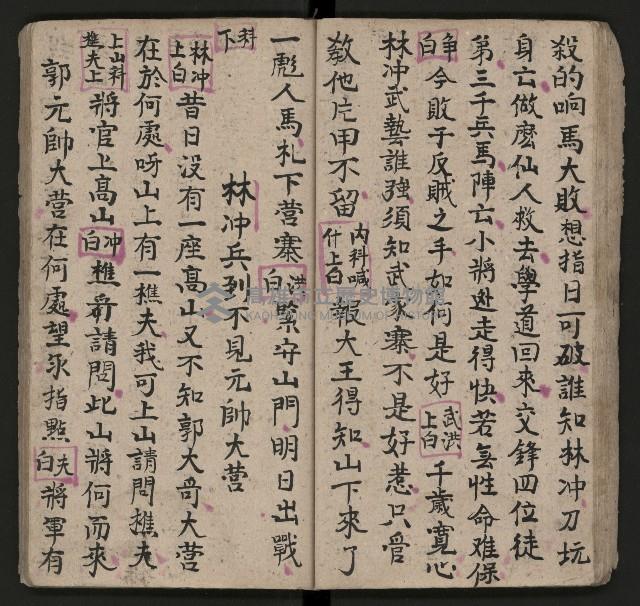 殺的响馬大敗想指日可破誰知林冲刀玩
身亡做麽仙人救去學道回來交鋒四位徒
弟三千兵馬陣亡小將逃走得快若無性命难保
争白今敗于反賊之手如何是好武洪上白千歲寬心
林冲武藝誰強須知武家寨不是好惹只管
教他片甲不留内科喊什上白報大王得知山下來了
一彪人馬札下营寨洪白緊守山門明日出戰
科下
林冲兵到不見元帥大营
林冲上白昔日没有一座高山又不知郭大哥大营
在於何處呀山上有一樵夫我可上山請問樵夫
上山科樵夫上將官上高山冲白樵哥請問此山將何而來
郭元帥大营在何處望永指點夫白將軍有
高雄市立歷史博物館
KAOHSIUNG MUSEUM OF HISTORY